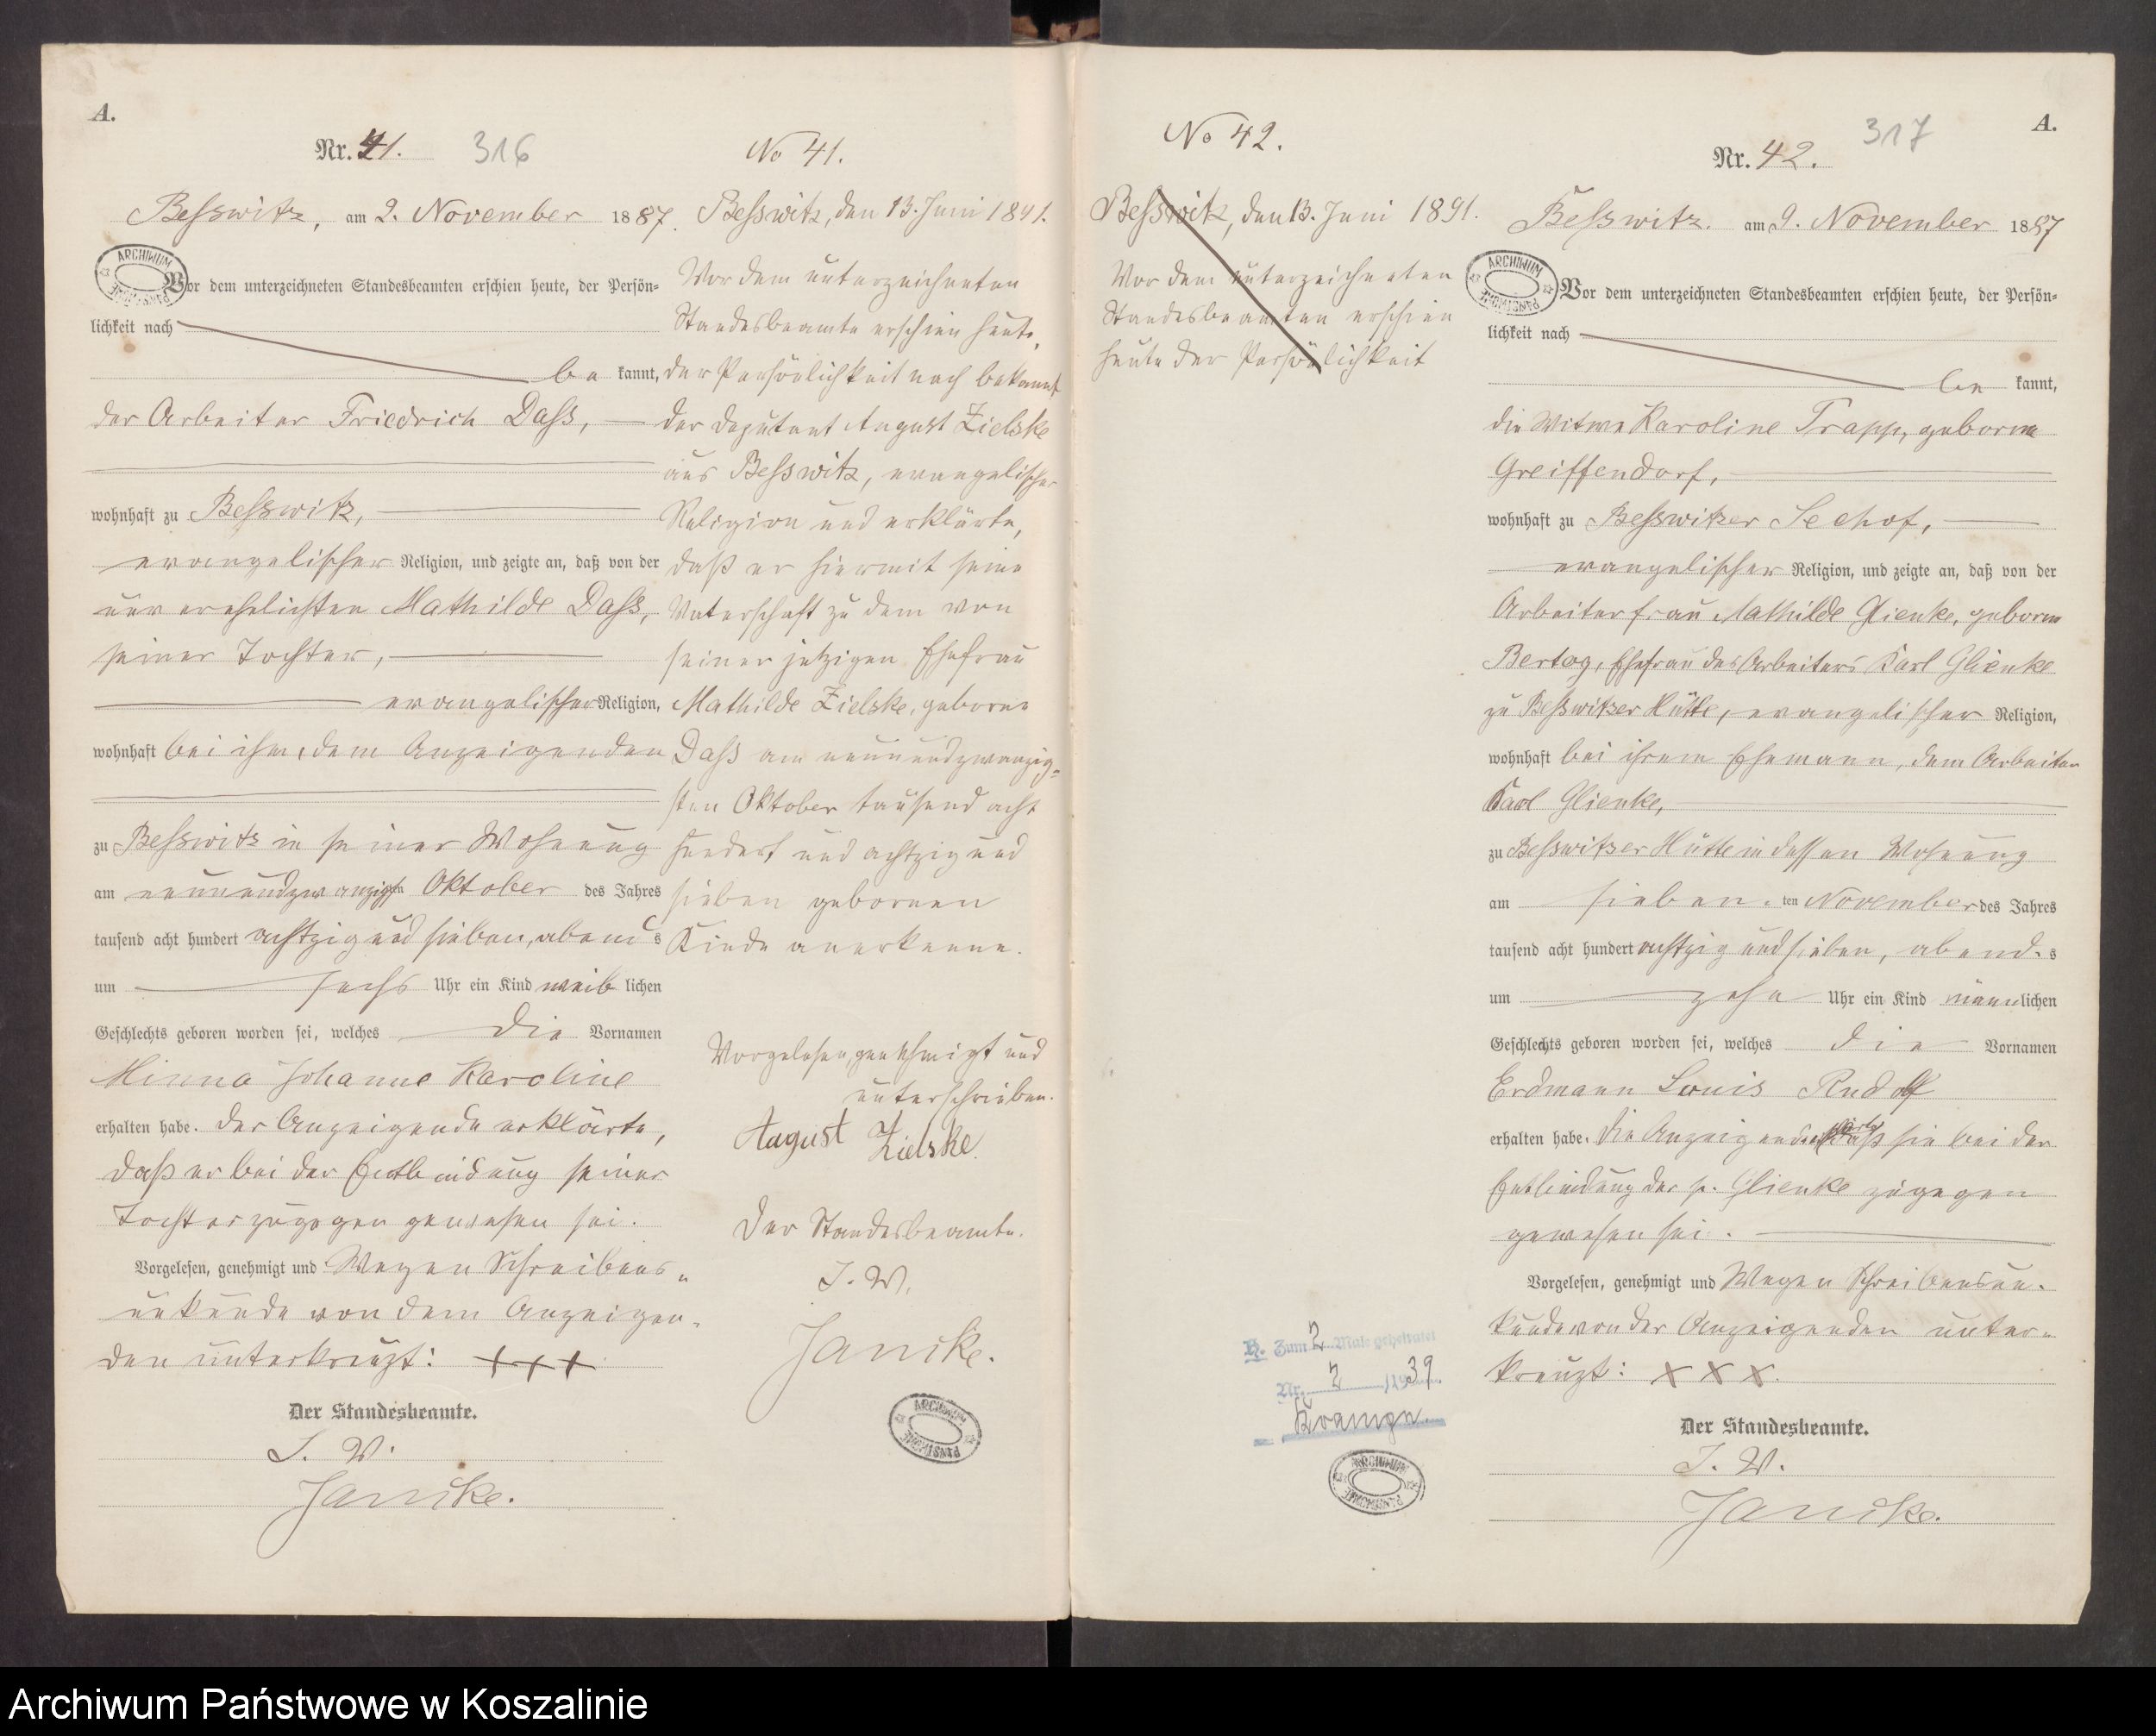 A.
Nr. 41. 316
Besswitz, am 2. November 1887.
Vor dem unterzeichneten Standesbeamten erschien heute, der Persön=
lichkeit nach
be kannt,
der Arbeiter Friedrich Dass,
wohnhaft zu Besswitz,
evangelischer Religion, und zeigte an, daß von der
unverehelichten Mathilde Dass,
seiner Tochter,
evangelischer Religion,
wohnhaft bei ihm, dem Anzeigenden
zu Besswitz in seiner Wohnung
am neunundzwanzigsten Oktober des Jahres
tausend acht hundert achtzig und sieben, abends
um sechs Uhr ein Kind weib lichen
Geschlechts geboren worden sei, welches die Vornamen
Minna Johanne Karoline
erhalten habe. Der Anzeigende erklärte,
daß er bei der Entbindung seiner
Tochter zugegen gewesen sei.
Vorgelesen, genehmigt und Wegen Schreibens-
unkunde von dem Anzeigen-
den unterkreuzt: +++
Der Standesbeamte.
I. V.
Janicke.
No 41.
Besswitz, den 13. Juni 1891.
Vor dem unterzeichneten
Standesbeamte erschien heute,
der Persönlichkeit nach bekannt
der Deputant August Zielske
aus Besswitz, evangelischer
Religion und erklärte,
daß er hiermit seine
Vaterschaft zu dem von
seiner jetzigen Ehefrau
Mathilde Zielske, geboren
Dass am neunundzwanzig=
sten Oktober tausend acht
hundert und achtzig und
sieben geborenen
Kinde anerkenne.
Vorgelesen, genehmigt und
unterschrieben.
August Zielske.
Der Standesbeamte.
I. V.
Janicke.
No 42.
Besswitz, den 13. Juni 1891.
Vor dem unterzeichneten
Standesbeamten erschien
heute der Persönlichkeit
Zum 2 Male geheiratet
Nr. 2 1939.
Krampe
A.
Nr. 42. 317
Besswitz. am 9. November 1887
Vor dem unterzeichneten Standesbeamten erschien heute, der Persön=
lichkeit nach
be kannt,
die Witwe Karoline Trapp, geborne
Greiffendorf,
wohnhaft zu Besswitzer Seehof,
evangelischer Religion, und zeigte an, daß von der
Arbeiterfrau Mathilde Glienke, geborne
Bertog, Ehefrau des Arbeiters Karl Glienke
zu Besswitzer Hütte, evangelischer Religion,
wohnhaft bei ihrem Ehemann, dem Arbeiter
Karl Glienke,
zu Besswitzer Hütte in dessen Wohnung
am sieben ten November des Jahres
tausend acht hundert achtzig und sieben, abends
um zehn Uhr ein Kind männlichen
Geschlechts geboren worden sei, welches die Vornamen
Erdmann Louis Rudolf
erhalten habe. Die Anzeigende erklärte, daß sie bei der
Entbindung der p. Glienke zugegen
gewesen sei.
Vorgelesen, genehmigt und Wegen Schreibensun-
kunde von der Anzeigenden unter-
kreuzt: XXX.
Der Standesbeamte.
I. V.
Janicke.
ARCHIWUM PAŃSTWOWE
ARCHIWUM PAŃSTWOWE
ARCHIWUM PAŃSTWOWE
ARCHIWUM PAŃSTWOWE
Archiwum Państwowe w Koszalinie